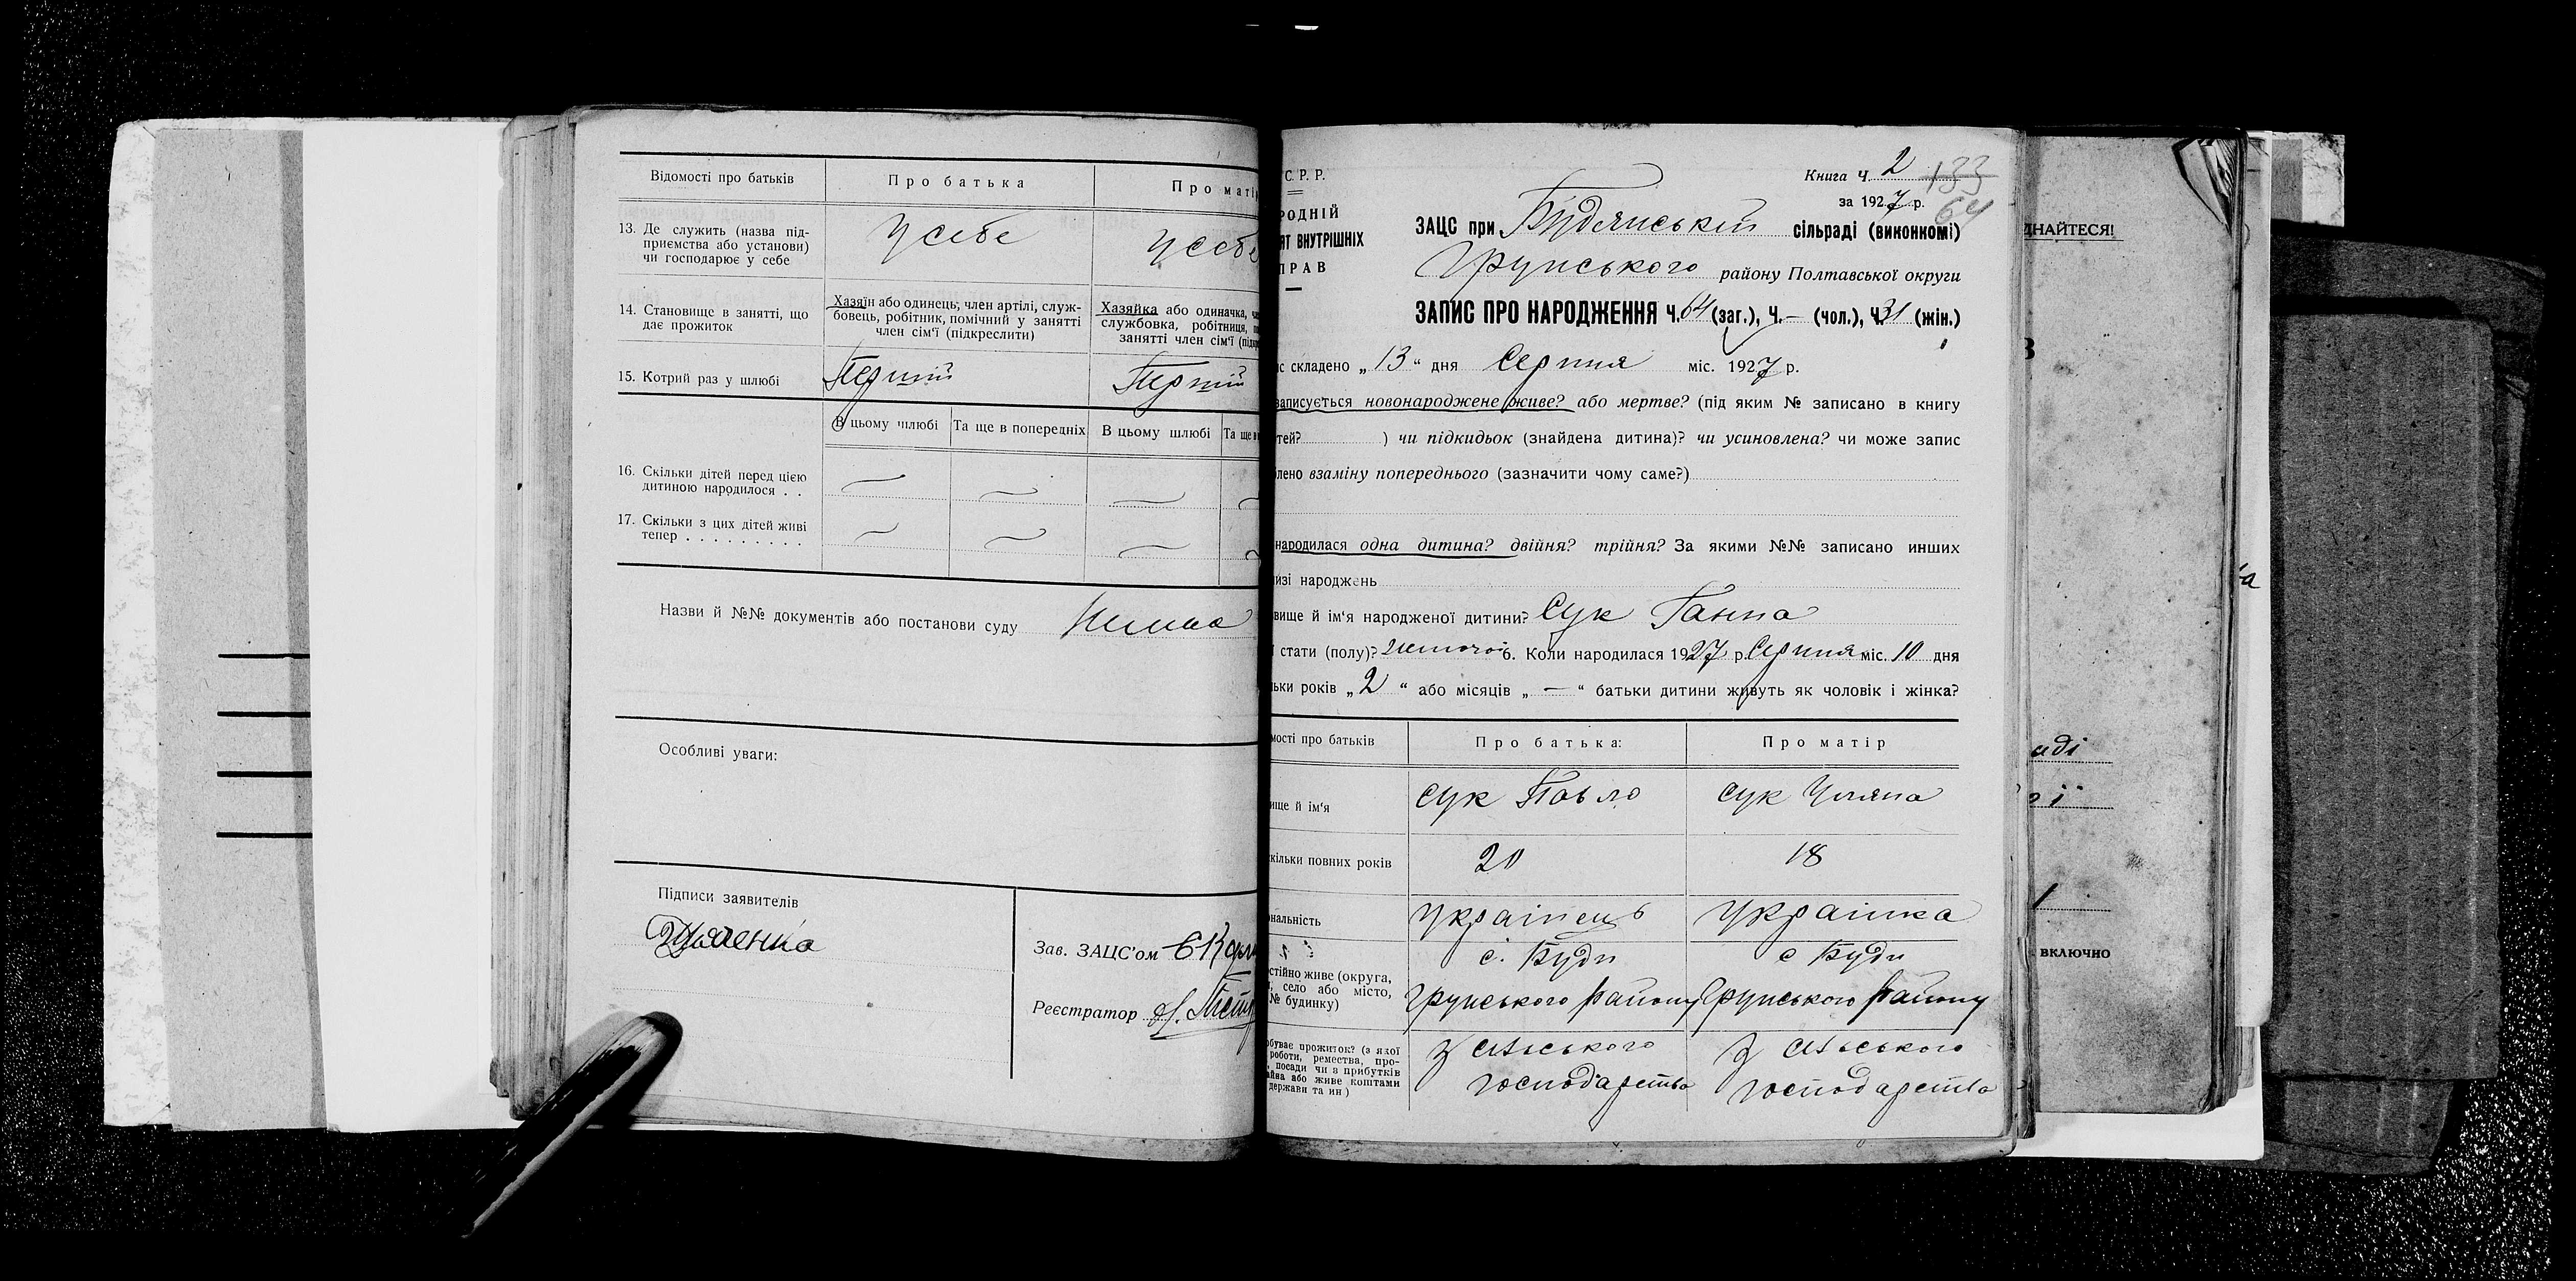 Відомості про батьків
Про батька
Про матір
13. Де служить (назва під-
приємства або установи)
чи господарює у себе
У себе
У себе
14. Становище в занятті, що
дає прожиток
Хазяїн або одинець, член артілі, служ-
бовець, робітник, помічний у занятті
член сім'ї (підкреслити)
Хазяйка або одиначка,
службовка, робітниця,
занятті член сім'ї
15. Котрий раз у шлюбі
Перший
Перший
В цьому шлюбі
Та ще в попередніх
В цьому шлюбі
Та ще в
16. Скільки дітей перед цією
дитиною народилося . .
17. Скільки з цих дітей живі
тепер . . . . . . . . .
Назви й №№ документів або постанови суду
Немає
Особливі уваги:
Підписи заявителів
Зав. ЗАЦС'ом
Реєстратор
С. Р. Р.
РОДНІЙ
ЯТ ВНУТРІШНІХ
ПРАВ
Книга Ч. 2
133
за 1927 р.
64
ЗАЦС при Будянській сільраді (виконкомі)
Грунського району Полтавської округи
ЗАПИС ПРО НАРОДЖЕННЯ Ч. 64 (заг.), Ч. — (чол.), Ч. 31 (жін.)
ис складено „13“ дня Серпня міс. 1927 р.
записується новонароджене живе? або мертве? (під яким № записано в книгу
тей? ) чи підкидьок (знайдена дитина)? чи усиновлена? чи може запис
блено взаміну попереднього (зазначити чому саме?)
народилася одна дитина? двійня? трійня? За якими №№ записано инших
изі народжень
вище й ім'я народженої дитини? Сук Ганна
ї стати (полу)? жіночої 6. Коли народилася 1927 р. Серпня міс. 10 дня
льки років „2“ або місяців „—“ батьки дитини живуть як чоловік і жінка?
мості про батьків
Про батька:
Про матір
ище й ім'я
Сук Павло
Сук Уляна
кільки повних років
20
18
ональність
Українець
Українка
стійно живе (округа,
село або місто,
№ будинку)
с. Буди
Грунського району
с Буди
Грунського району
обуває прожиток? (з якої
роботи, ремества, про-
посади чи з прибутків
айна або живе коштами
держави та ин)
З сільського
господарства
З сільського
господарства
ДНАЙТЕСЯ!
В
аді
ої
включно